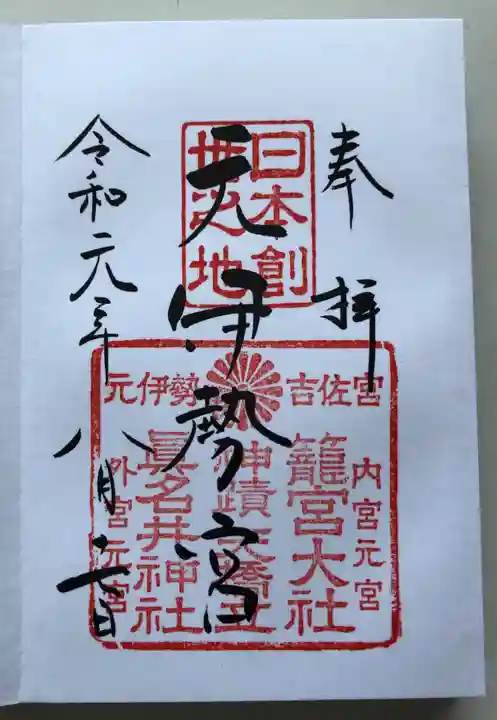 奉拝
日本創
世之地
元伊勢宮
吉佐宮
元伊勢
内宮元宮
籠宮大社
神蹟天橋立
眞名井神社
外宮元宮
令和元年八月